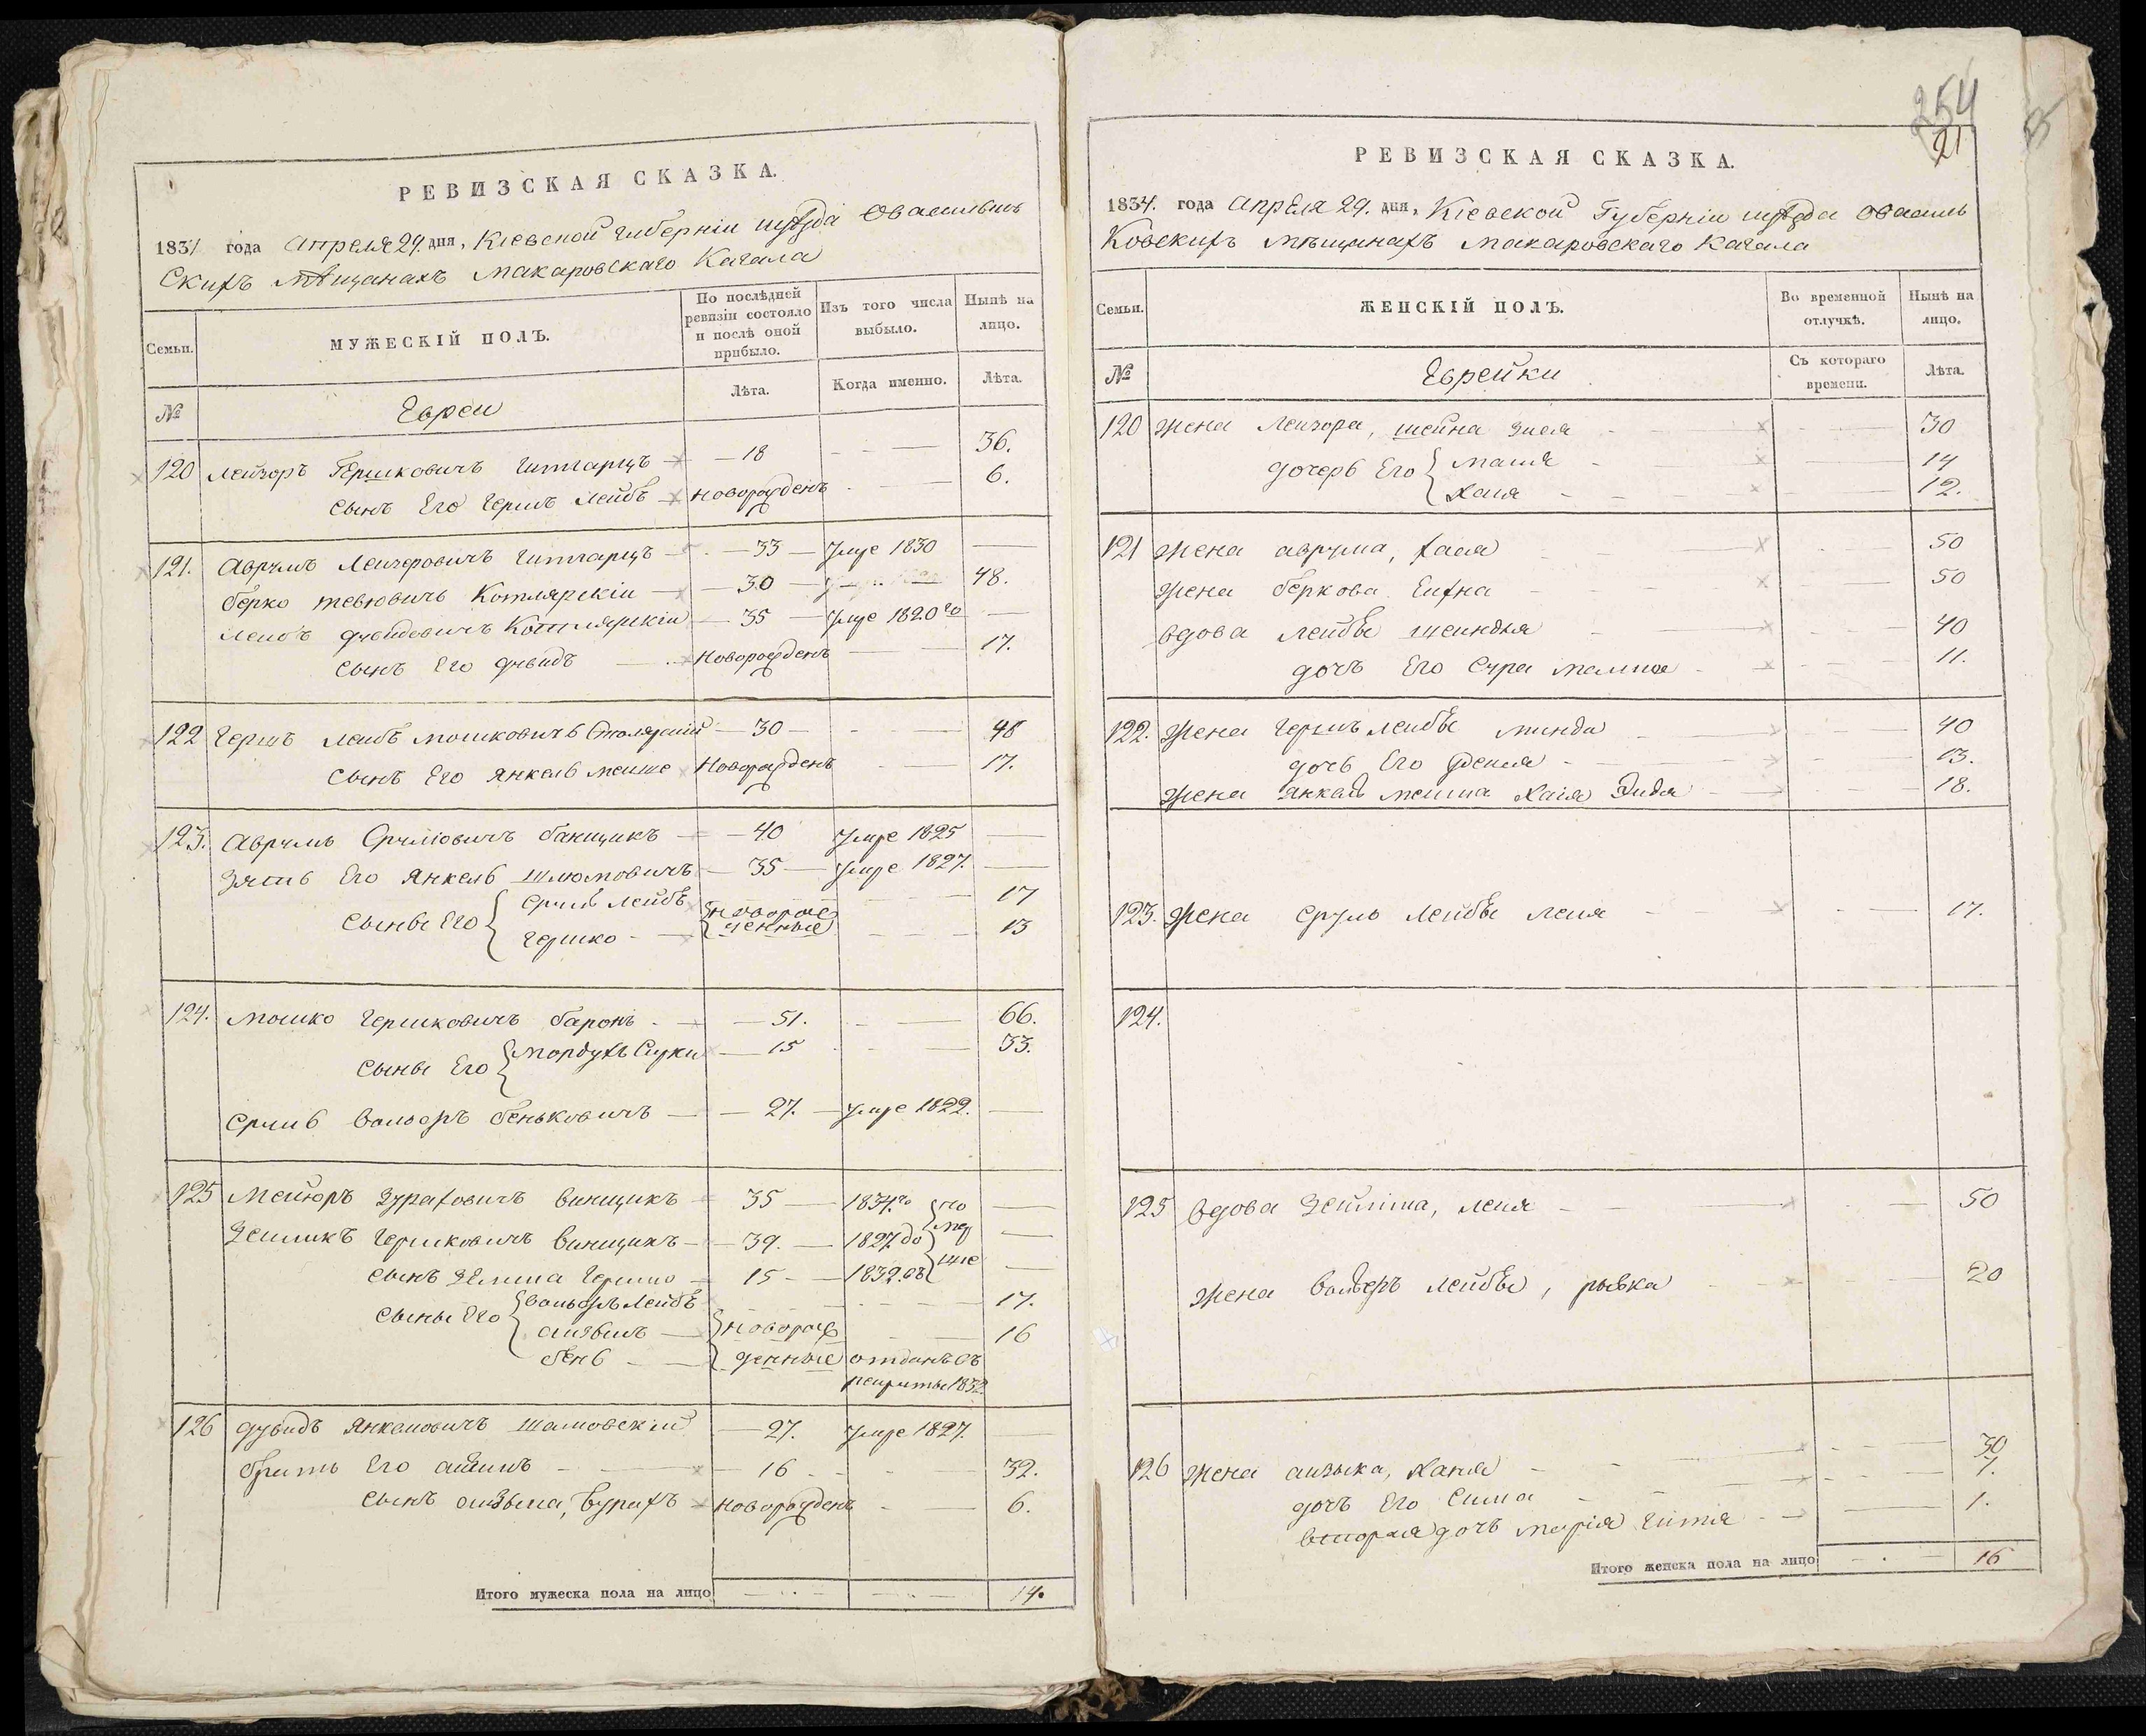 РЕВИЗСКАЯ СКАЗКА.
1834 года Апреля 29. дня, Кіевской Губерніи уѣзда О Васильков
Скихъ мѣщанахъ Макаровскаго Кагала
Семьи.
МУЖЕСКІЙ ПОЛЪ.
По послѣдней ревизіи состояло и послѣ оной прибыло.
Изъ того числа выбыло.
Нынѣ на лицо.
№
Евреи
Лѣта.
Когда именно.
Лѣта.
120 Лейзоръ Гершковичъ — 18 — 36.
Сынъ Его Гершъ Лейбъ новорожденъ — 6.
121. Аврумъ Лейзеровичъ — 33 — Умре 1830 —
Берко Тевювичъ Котлярскій — 30 — 48.
Лейбъ Дувидовичъ Котлярскій — 35 — Умре 1820го —
Сынъ Его Дувидъ — Новорожденъ — 17.
122 Гершъ Лейбъ Мошковичъ Столярскій — 30 — 48
Сынъ Его Янкель Меише Новорожденъ — 17.
123. Аврумъ Срулювичъ Банщикъ — 40 Умре 1825 —
Зять Его Янкель Шлюмовичъ — 35 — Умре 1827. —
Сыны Его { Сруль Лейбъ { новорож — 17
Гершко — { денные — 13
124. Мошко Гершковичъ Баронъ — 51. — 66.
Сыны Его { Мордухъ — 15 — 33.
Сруль Вольфъ Беньковичъ — 27. — Умре 1822. —
125 Мейюръ Зураховичъ Винщикъ — 35 — 1831го { по —
Зейликъ Гершковичъ Винщикъ — 39. — 1827до { мер —
Сынъ Зелика Гершко — 15 — 1832.въ { шіе —
Сыны Его { Вольфъ Лейбъ — 17.
Айзыкъ — { новорож — 16
Бень — { денные отданъ въ
рекруты 1832
126 Дувидъ Янкелювичъ — 27. Умре 1827. —
Братъ Его Айзикъ — 16 — 32.
Сынъ Айзыка, Зурахъ — новорожденъ — 6.
Итого мужеска пола на лицо — 14.
254
21
РЕВИЗСКАЯ СКАЗКА.
1834. года Апреля 29. дня, Кіевской Губерніи уѣзда О Василь
Ковскихъ Мѣщанахъ Макаровскаго Кагала
Семьи.
ЖЕНСКІЙ ПОЛЪ.
Во временной отлучкѣ.
Нынѣ на лицо.
№
Еврейки
Съ котораго времени.
Лѣта.
120 Жена Лейзора, Шейна — 30
Дочерь Его { Маля — 14
Хаія — 12.
121 Жена Аврума, Хаія — 50
Жена Беркова Ейхна — 50
Вдова Лейбы Шейндля — 40
Дочь Его Сура Малка — 11.
122. Жена Гершъ Лейбы Минди — 40
Дочь Его — 13.
Жена Янкель Меиша Хаія — 18.
123. Жена Сруль Лейбы Лея — 17.
124.
125 Вдова Зейлика, Лея — 50
Жена Вольфъ Лейбы, Рывка — 20
126 Жена Айзыка, Хаия — 30
Дочь Его Сима — 7.
Вторая дочь Марія Гитля — 1.
Итого женска пола на лицо — 16